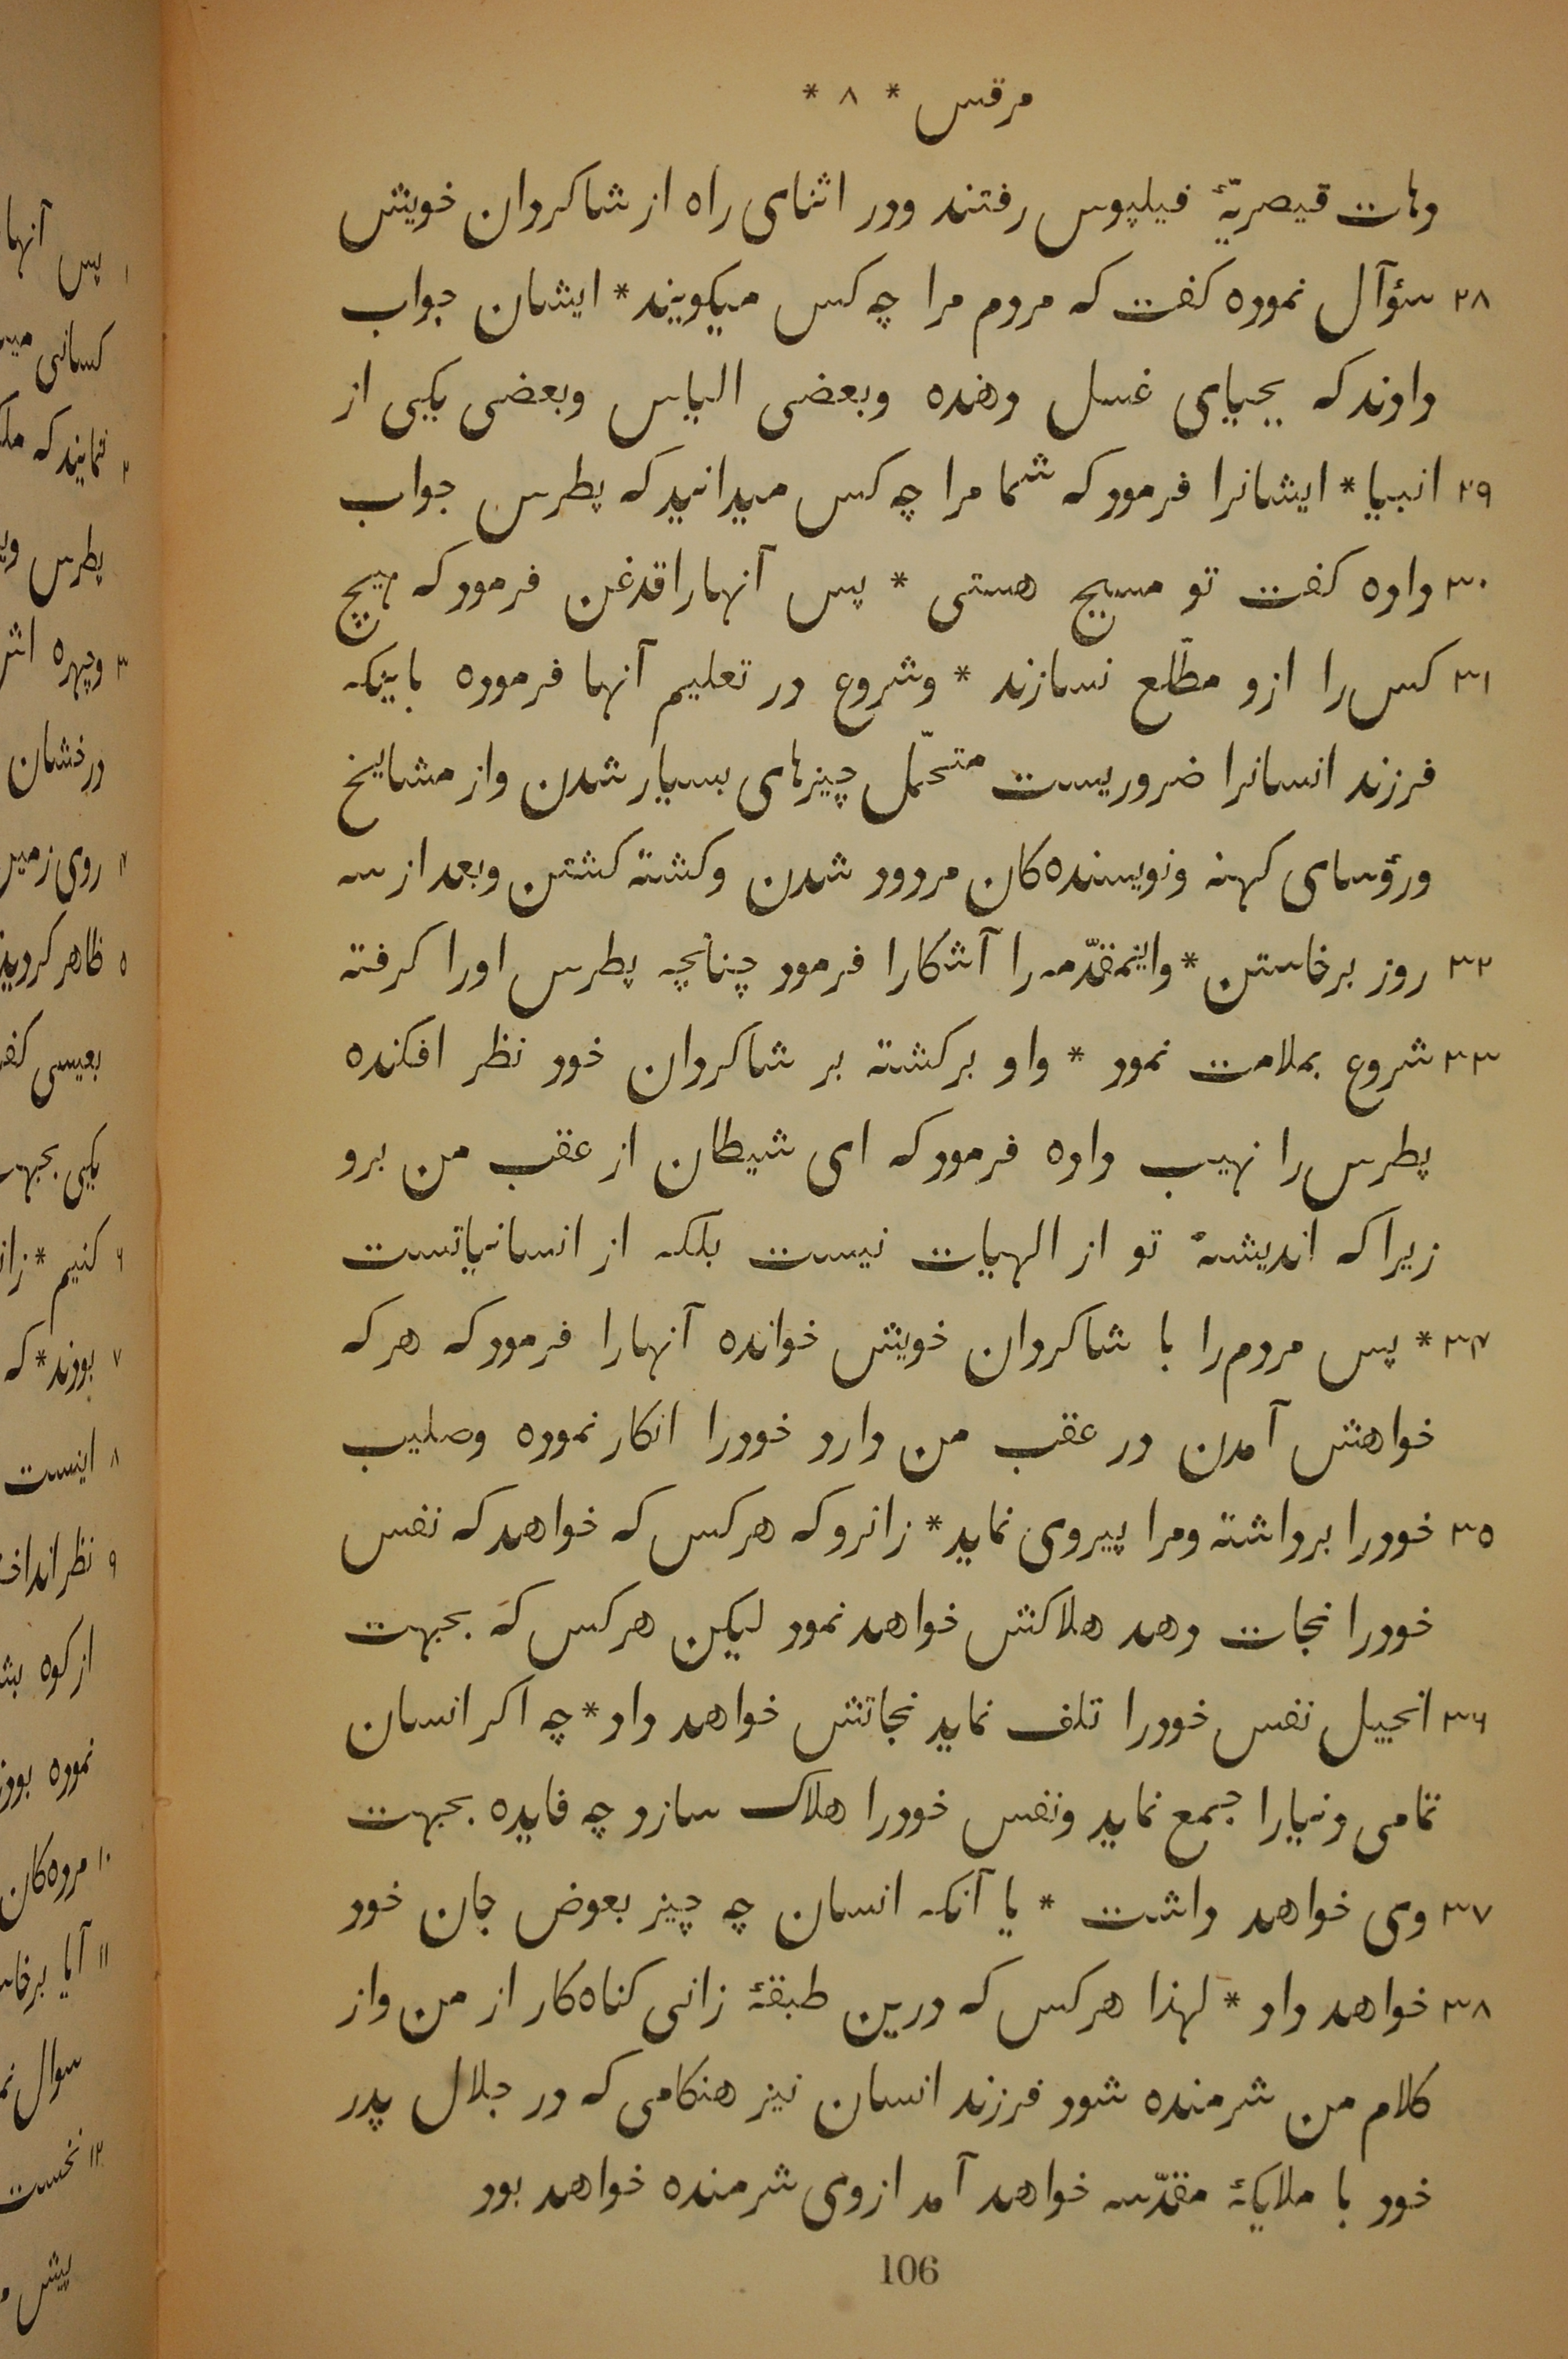 مرقس * ۸ *
دهات قیصریّهٔ فیلپوس رفتند ودر اثنای راه از شاکردان خویش
۲۸ سؤآل نموده کفت که مردم مرا چه کس میکویند * ایشان جواب
دادند که یحیای غسل دهنده وبعضی الیاس وبعضی یکی از
۲۹ انبیا * ایشانرا فرمود که شما مرا چه کس میدانید که پطرس جواب
۳۰ داده کفت تو مسیح هستی * پس آنهارا قدغن فرمود که هیچ
۳۱ کس را ازو مطّلع نسازند * وشروع در تعلیم آنها فرموده باینکه
فرزند انسانرا ضروریست متحمّل چیزهای بسیار شدن واز مشایخ
ورؤسای کهنه ونویسنده کان مردود شدن وکشته کشتن وبعد از سه
۳۲ روز برخاستن * واینمقدّمه را آشکارا فرمود چنانچه پطرس اورا کرفته
۳۳ شروع بملامت نمود * واو برکشته بر شاکردان خود نظر افکنده
پطرس را نهیب داده فرمود که ای شیطان از عقب من برو
زیرا که اندیشهٔ تو از الهیات نیست بلکه از انسانیاتست
۳۴ * پس مردم را با شاکردان خویش خوانده آنهارا فرمود که هر که
خواهش آمدن در عقب من دارد خودرا انکار نموده وصلیب
۳۵ خودرا برداشته ومرا پیروی نماید * زانرو که هر کس که خواهد که نفس
خودرا نجات دهد هلاکش خواهد نمود لیکن هر کس که بجهت
۳۶ انجیل نفس خودرا تلف نماید نجاتش خواهد داد * چه اکر انسان
تمامی دنیارا جمع نماید ونفس خودرا هلاک سازد چه فایده بجهت
۳۷ وی خواهد داشت * یا آنکه انسان چه چیز بعوض جان خود
۳۸ خواهد داد * لهذا هر کس که درین طبقهٔ زانی کناه کار از من واز
کلام من شرمنده شود فرزند انسان نیز هنکامی که در جلال پدر
خود با ملایکهٔ مقدّسه خواهد آمد ازوی شرمنده خواهد بود
106
۱ پس آنها
کسانی
۲ نمایند که
پطرس
۳ وچهره
درخشان
۴ روی زمین
۵ ظاهر کردید
بعیسی
یکی بجهت
۶ کنیم *
۷ بودند * که
۸ اینست
۹ نظر
از کوه
نموده
۱۰ مرده کان
۱۱ آیا
سوال
۱۲ نخست
پیش